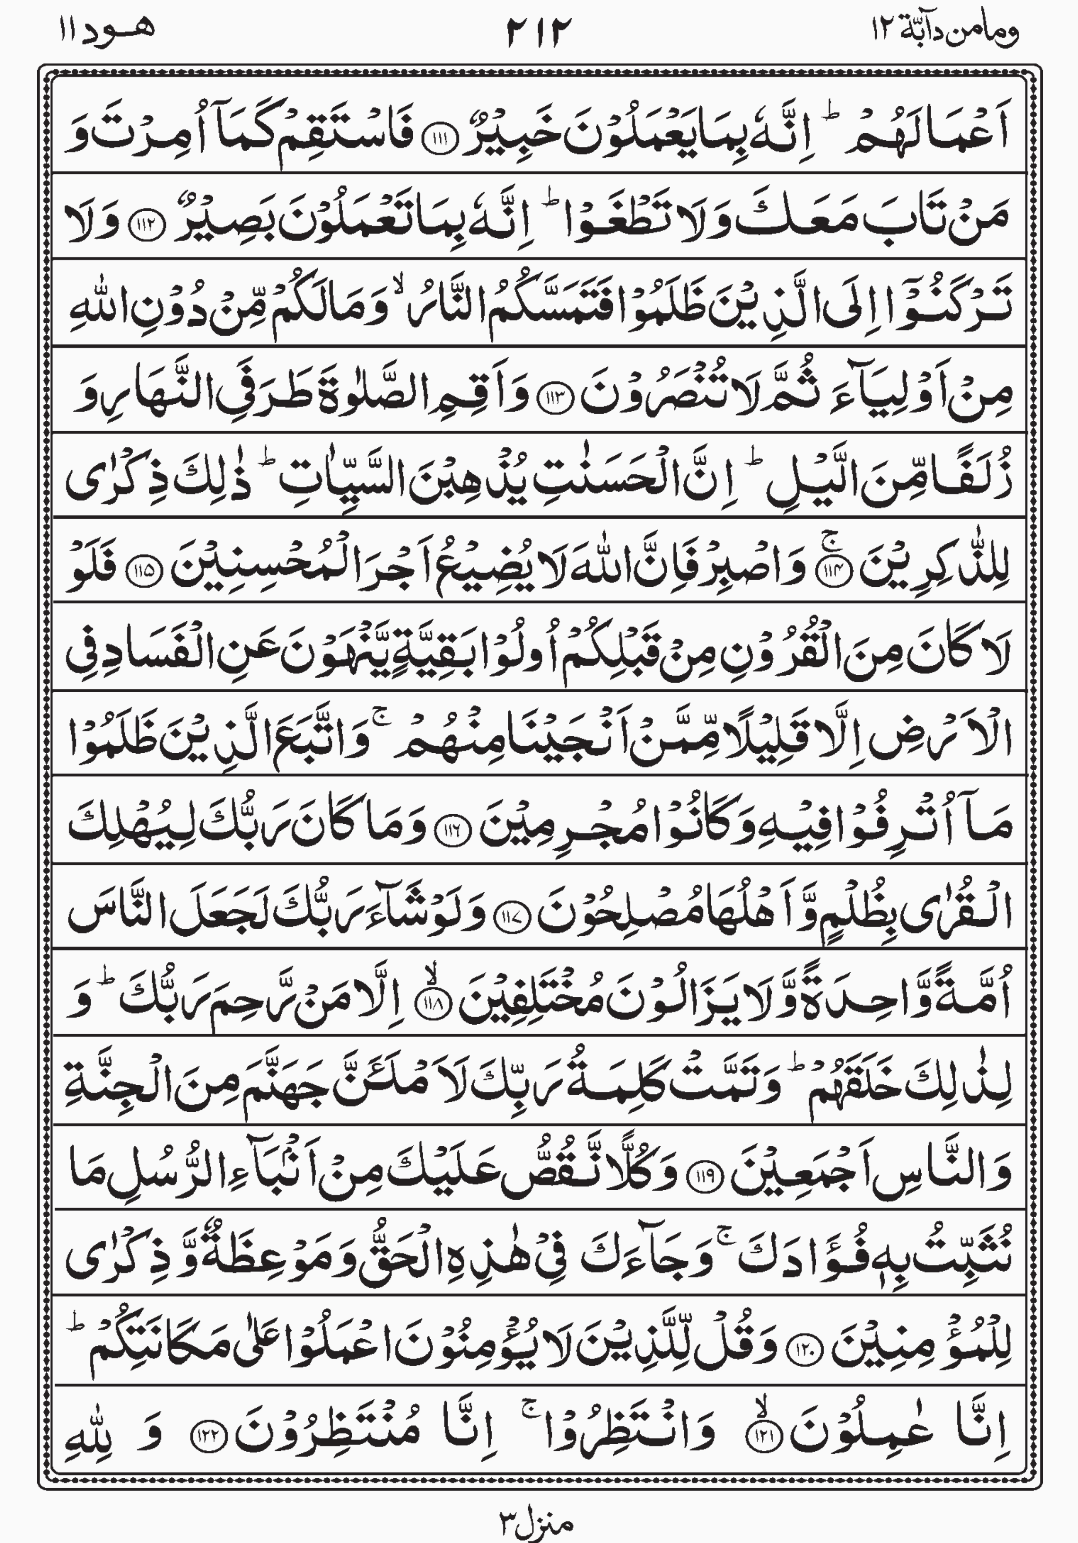 وما من دآبّة ١٢
٢١٢
هود ١١
اَعْمَالَهُمْ ؕ اِنَّهٗ بِمَا يَعْمَلُوْنَ خَبِيْرٌ ﴿١١١﴾ فَاسْتَقِمْ كَمَاۤ اُمِرْتَ وَ
مَنْ تَابَ مَعَكَ وَلَا تَطْغَوْا ؕ اِنَّهٗ بِمَا تَعْمَلُوْنَ بَصِيْرٌ ﴿١١٢﴾ وَلَا
تَرْكَنُوْۤا اِلَى الَّذِيْنَ ظَلَمُوْا فَتَمَسَّكُمُ النَّارُ ۙ وَمَا لَكُمْ مِّنْ دُوْنِ اللّٰهِ
مِنْ اَوْلِيَآءَ ثُمَّ لَا تُنْصَرُوْنَ ﴿١١٣﴾ وَاَقِمِ الصَّلٰوةَ طَرَفَيِ النَّهَارِ وَ
زُلَفًا مِّنَ الَّيْلِ ؕ اِنَّ الْحَسَنٰتِ يُذْهِبْنَ السَّيِّاٰتِ ؕ ذٰلِكَ ذِكْرٰى
لِلذّٰكِرِيْنَ ۚ ﴿١١٤﴾ وَاصْبِرْ فَاِنَّ اللّٰهَ لَا يُضِيْعُ اَجْرَ الْمُحْسِنِيْنَ ﴿١١٥﴾ فَلَوْ
لَا كَانَ مِنَ الْقُرُوْنِ مِنْ قَبْلِكُمْ اُولُوْا بَقِيَّةٍ يَّنْهَوْنَ عَنِ الْفَسَادِ فِى
الْاَرْضِ اِلَّا قَلِيْلًا مِّمَّنْ اَنْجَيْنَا مِنْهُمْ ۚ وَاتَّبَعَ الَّذِيْنَ ظَلَمُوْا
مَاۤ اُتْرِفُوْا فِيْهِ وَكَانُوْا مُجْرِمِيْنَ ﴿١١٦﴾ وَمَا كَانَ رَبُّكَ لِيُهْلِكَ
الْقُرٰى بِظُلْمٍ وَّاَهْلُهَا مُصْلِحُوْنَ ﴿١١٧﴾ وَلَوْ شَآءَ رَبُّكَ لَجَعَلَ النَّاسَ
اُمَّةً وَّاحِدَةً وَّلَا يَزَالُوْنَ مُخْتَلِفِيْنَ ۙ ﴿١١٨﴾ اِلَّا مَنْ رَّحِمَ رَبُّكَ ؕ وَ
لِذٰلِكَ خَلَقَهُمْ ؕ وَتَمَّتْ كَلِمَةُ رَبِّكَ لَاَمْلَـَٔنَّ جَهَنَّمَ مِنَ الْجِنَّةِ
وَالنَّاسِ اَجْمَعِيْنَ ﴿١١٩﴾ وَكُلًّا نَّقُصُّ عَلَيْكَ مِنْ اَنْۢبَآءِ الرُّسُلِ مَا
نُثَبِّتُ بِهٖ فُؤَادَكَ ۚ وَجَآءَكَ فِيْ هٰذِهِ الْحَقُّ وَمَوْعِظَةٌ وَّذِكْرٰى
لِلْمُؤْمِنِيْنَ ﴿١٢٠﴾ وَقُلْ لِّلَّذِيْنَ لَا يُؤْمِنُوْنَ اعْمَلُوْا عَلٰى مَكَانَتِكُمْ ؕ
اِنَّا عٰمِلُوْنَ ۙ ﴿١٢١﴾ وَانْتَظِرُوْا ۚ اِنَّا مُنْتَظِرُوْنَ ﴿١٢٢﴾ وَ لِلّٰهِ
منزل ٣